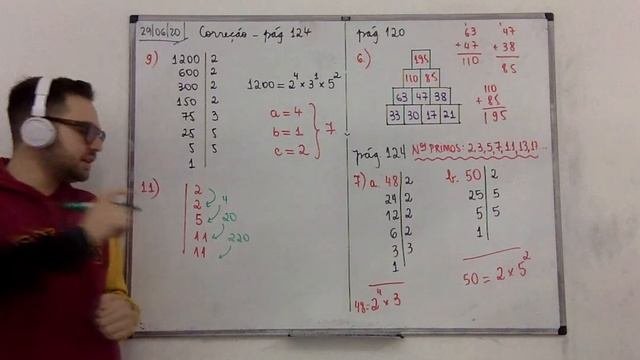 29/06/20 Correção - pág 124
9)
1200 2
600 2
300 2
150 2
75 3
25 5
5 5
1
1200 = 2⁴ x 3¹ x 5²
a = 4
b = 1
c = 2
7
11)
2
2 4
5 20
11 220
11
pág 120
6.)
195
110 85
63 47 38
33 30 17 21
¹63
+ 47
110
¹47
+ 38
85
110
+ 85
195
pág 124 Nºˢ PRIMOS: 2,3,5,7,11,13,17...
7) a. 48 2
24 2
12 2
6 2
3 3
1
48 = 2⁴ x 3
b. 50 2
25 5
5 5
1
50 = 2 x 5²